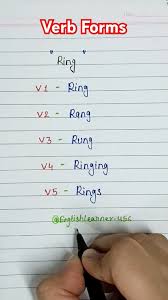 Verb Forms
"Ring"
V1 - Ring
V2 - Rang
V3 - Rung
V4 - Ringing
V5 - Rings